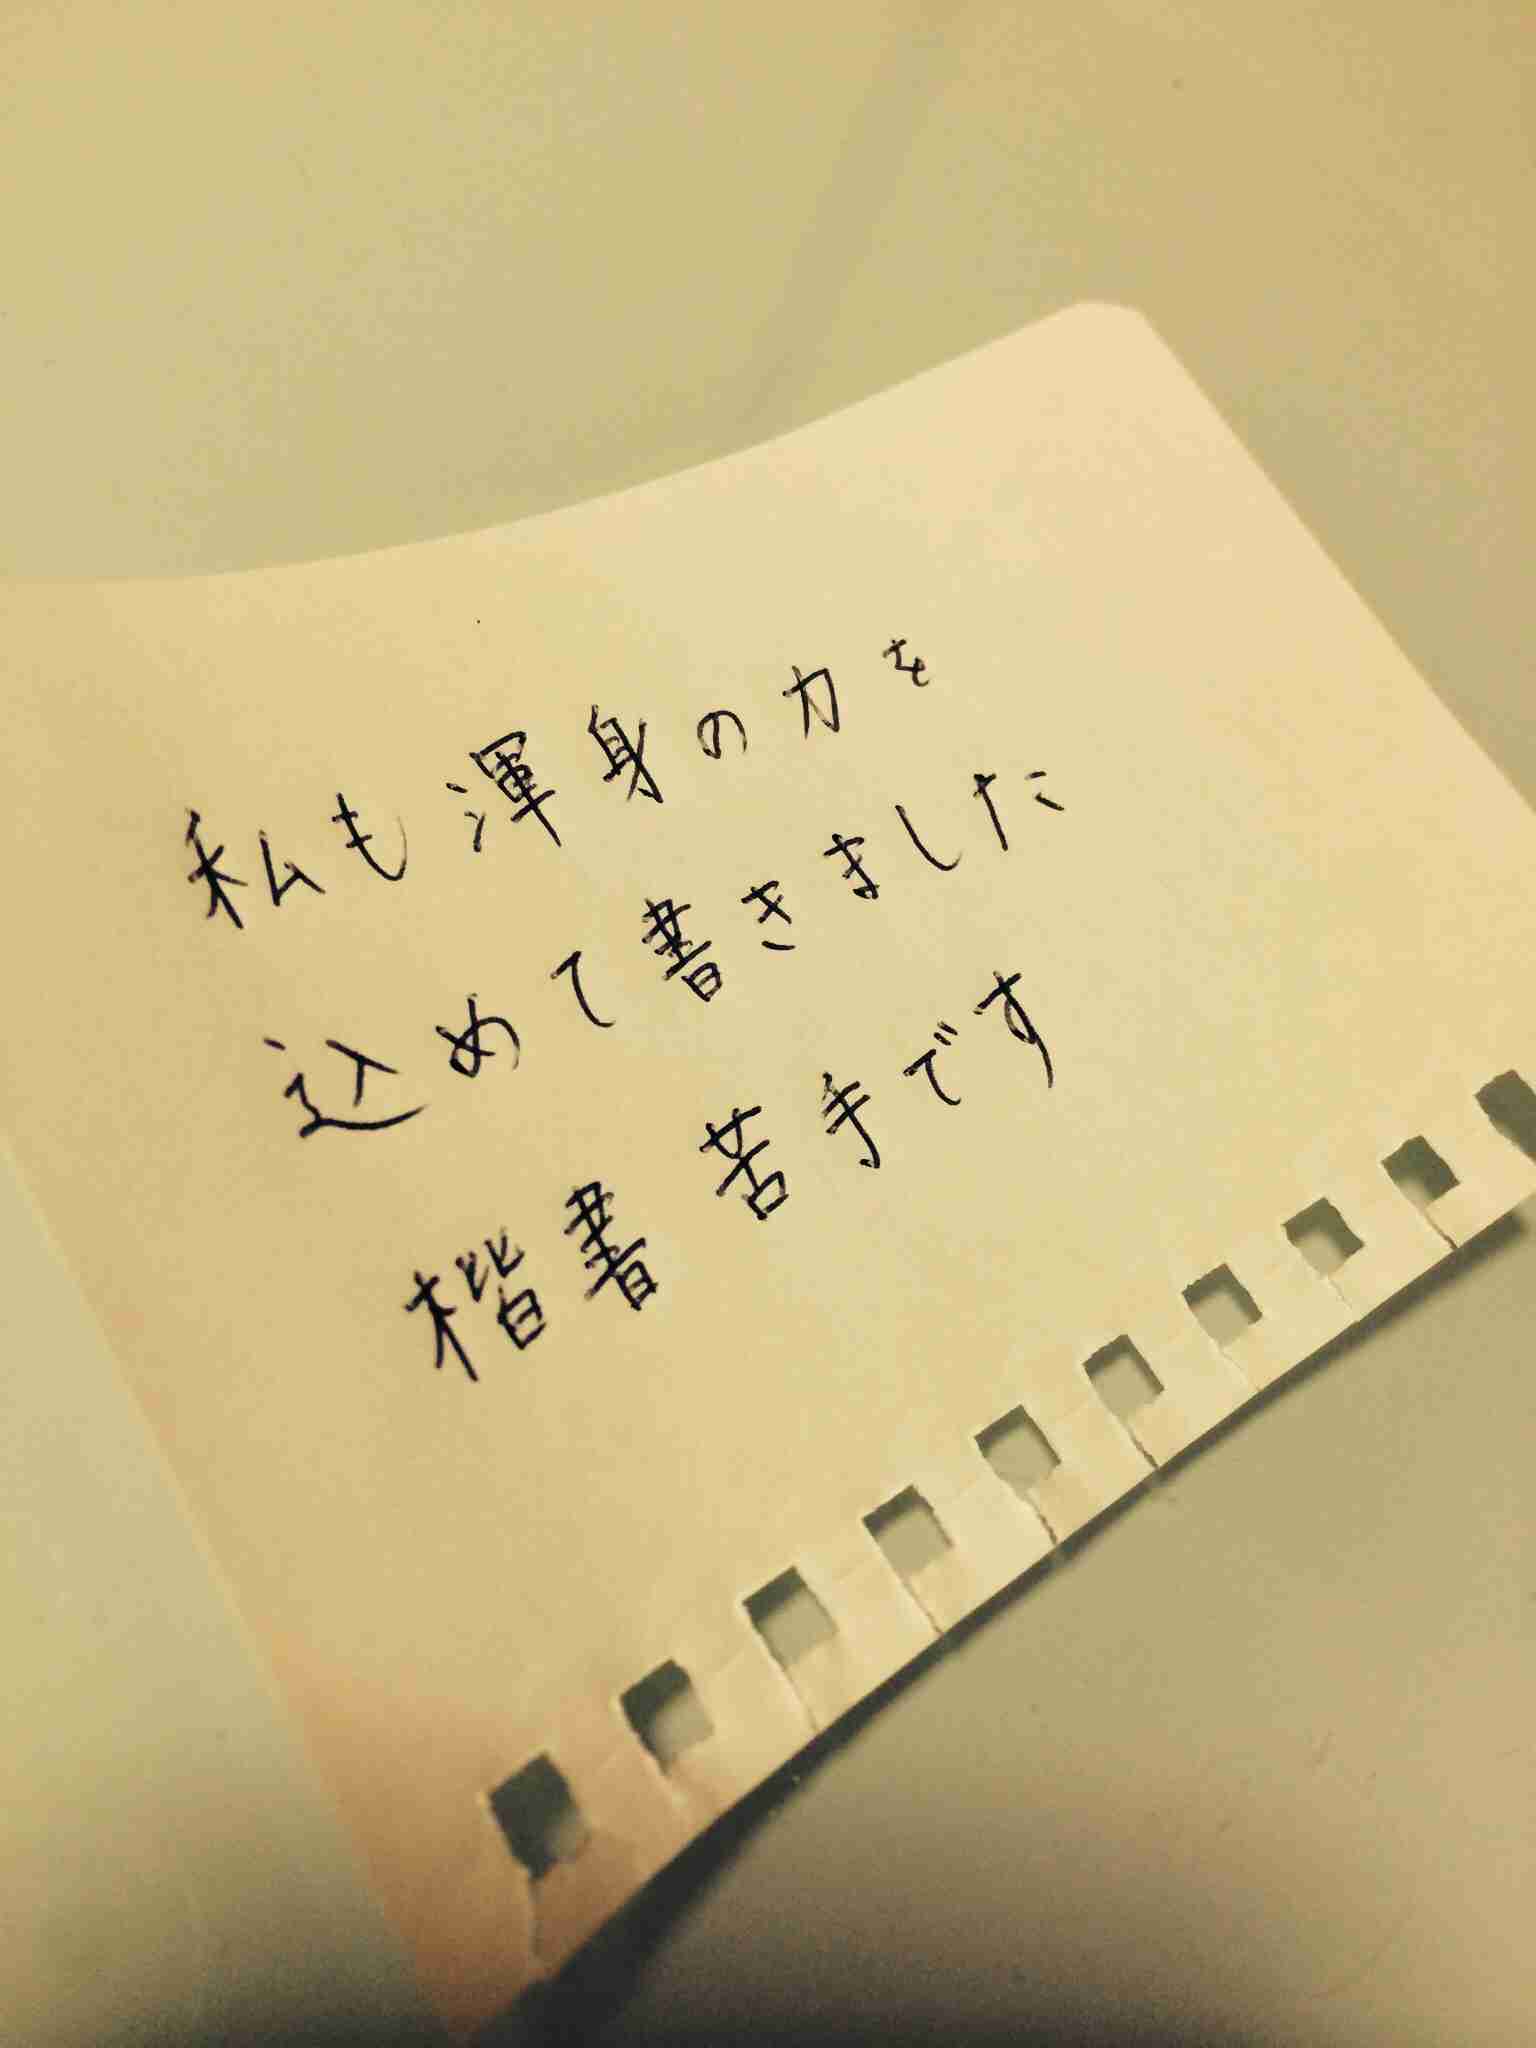 私も渾身の力を
込めて書きました
楷書 苦手です